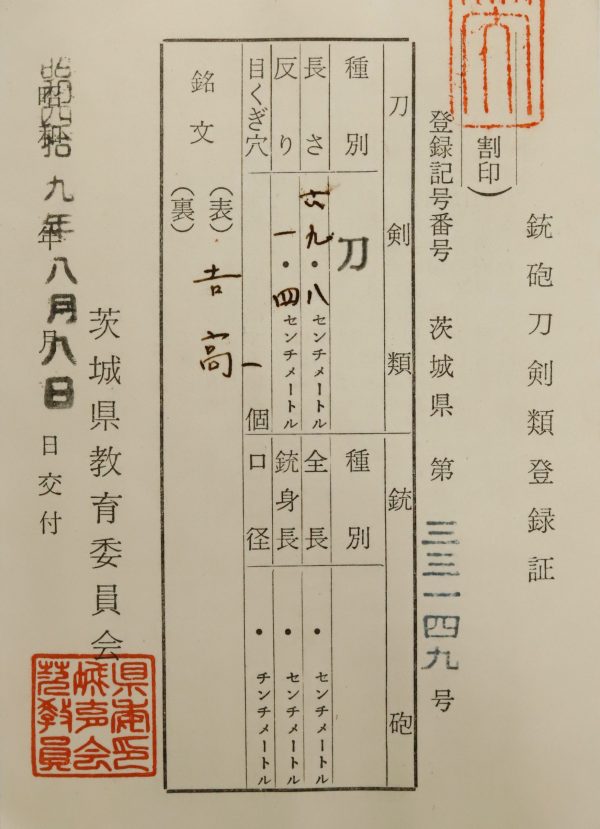 銃砲刀剣類登録証
(割印)
登録記号番号 茨城県 第 三三一四九 号
刀剣類
種別 刀
長さ 六九・八センチメートル
反り 一・四センチメートル
目くぎ穴 一個
銃砲
種別
全長 ・センチメートル
銃身長 ・センチメートル
口径 ・センチメートル
銘文 (表) 吉高
(裏)
茨城県教育委員会
昭和四拾九年八月八日交付